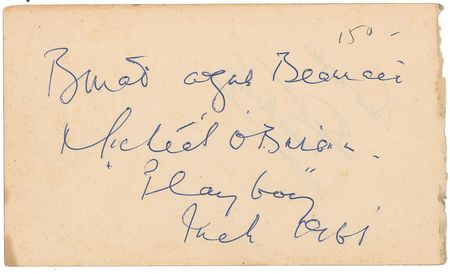 150 -
Buaḋ agus Beannaċt
Micheál ó Briain
"Playboy"
Inch 1961